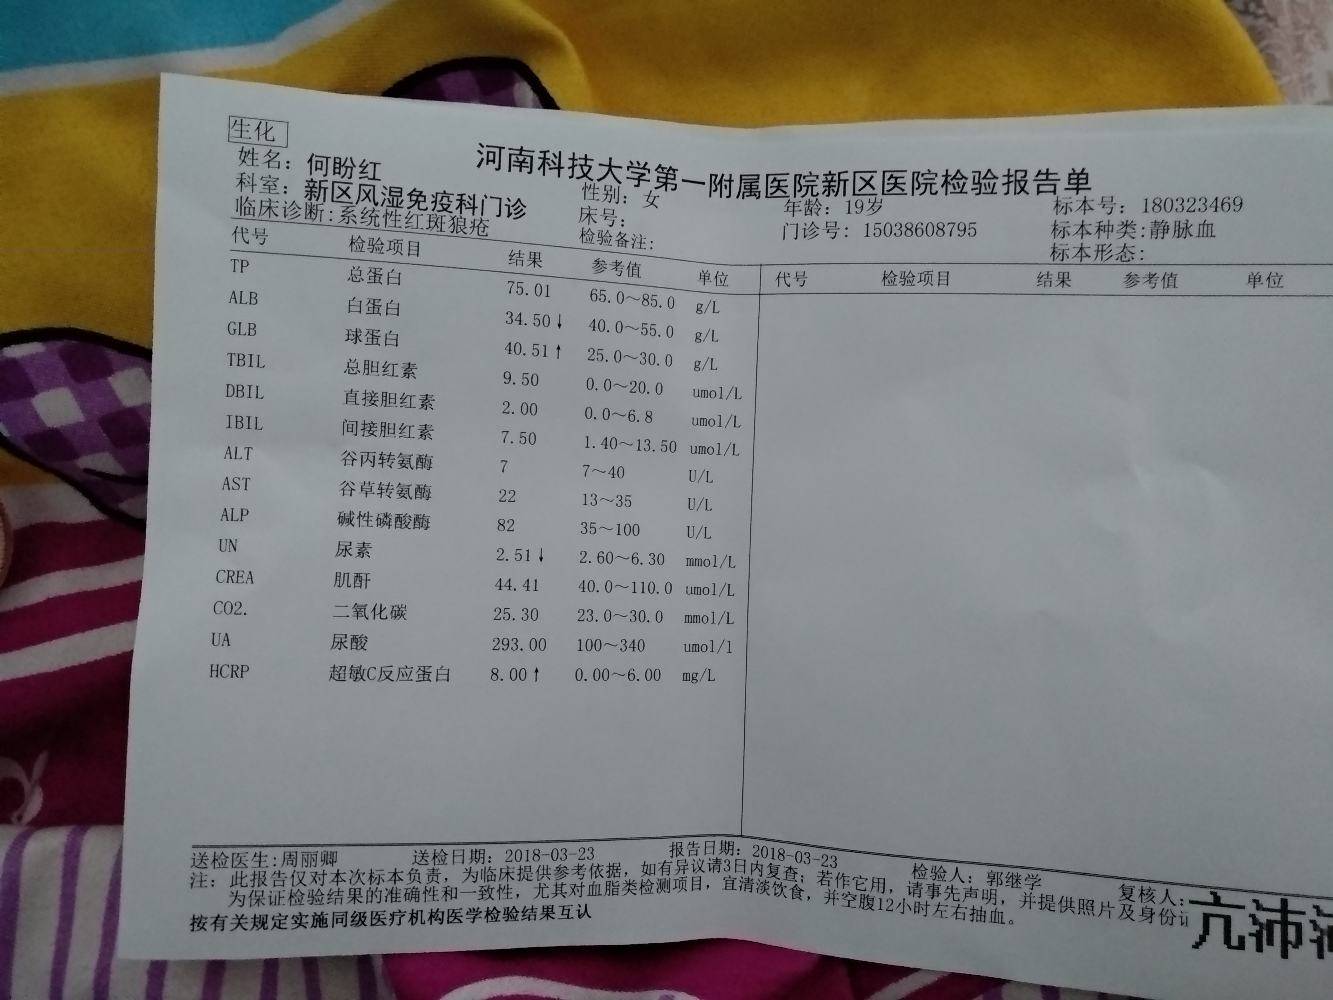 生化
河南科技大学第一附属医院新区医院检验报告单
姓名: 何盼红 性别: 女 年龄: 19岁 标本号: 180323469
科室: 新区风湿免疫科门诊 床号: 门诊号: 15038608795 标本种类:静脉血
临床诊断:系统性红斑狼疮 检验备注: 标本形态:
代号 检验项目 结果 参考值 单位 代号 检验项目 结果 参考值 单位
TP 总蛋白 75.01 65.0～85.0 g/L
ALB 白蛋白 34.50↓ 40.0～55.0 g/L
GLB 球蛋白 40.51↑ 25.0～30.0 g/L
TBIL 总胆红素 9.50 0.0～20.0 umol/L
DBIL 直接胆红素 2.00 0.0～6.8 umol/L
IBIL 间接胆红素 7.50 1.40～13.50 umol/L
ALT 谷丙转氨酶 7 7～40 U/L
AST 谷草转氨酶 22 13～35 U/L
ALP 碱性磷酸酶 82 35～100 U/L
UN 尿素 2.51↓ 2.60～6.30 mmol/L
CREA 肌酐 44.41 40.0～110.0 umol/L
CO2. 二氧化碳 25.30 23.0～30.0 mmol/L
UA 尿酸 293.00 100～340 umol/l
HCRP 超敏C反应蛋白 8.00↑ 0.00～6.00 mg/L
送检医生:周丽卿 送检日期: 2018-03-23 报告日期: 2018-03-23 检验人: 郭继学 复核人:亢沛
注: 此报告仅对本次标本负责，为临床提供参考依据，如有异议请3日内复查；若作它用，请事先声明，并提供照片及身份证
为保证检验结果的准确性和一致性，尤其对血脂类检测项目，宜清淡饮食，并空腹12小时左右抽血。
按有关规定实施同级医疗机构医学检验结果互认